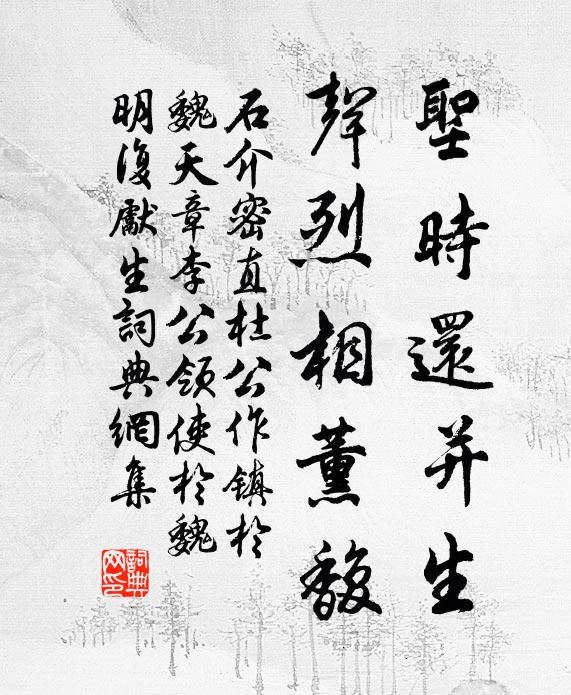 聖時還并生
聲烈相薰馥
石介密直杜公作鎮於
魏天章李公領使於魏
明復獻生詞典網集
詞典網印